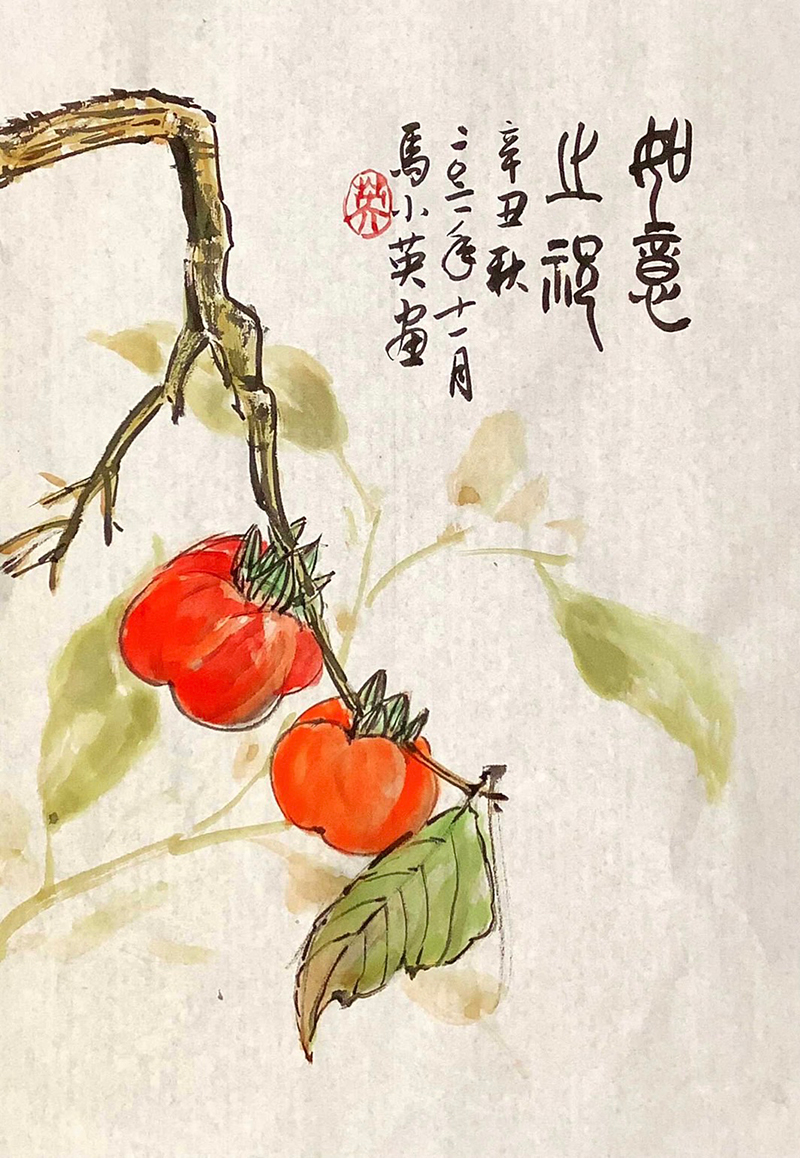 如意
之祝
辛丑秋
二〇二一年十一月
馬小英画
英